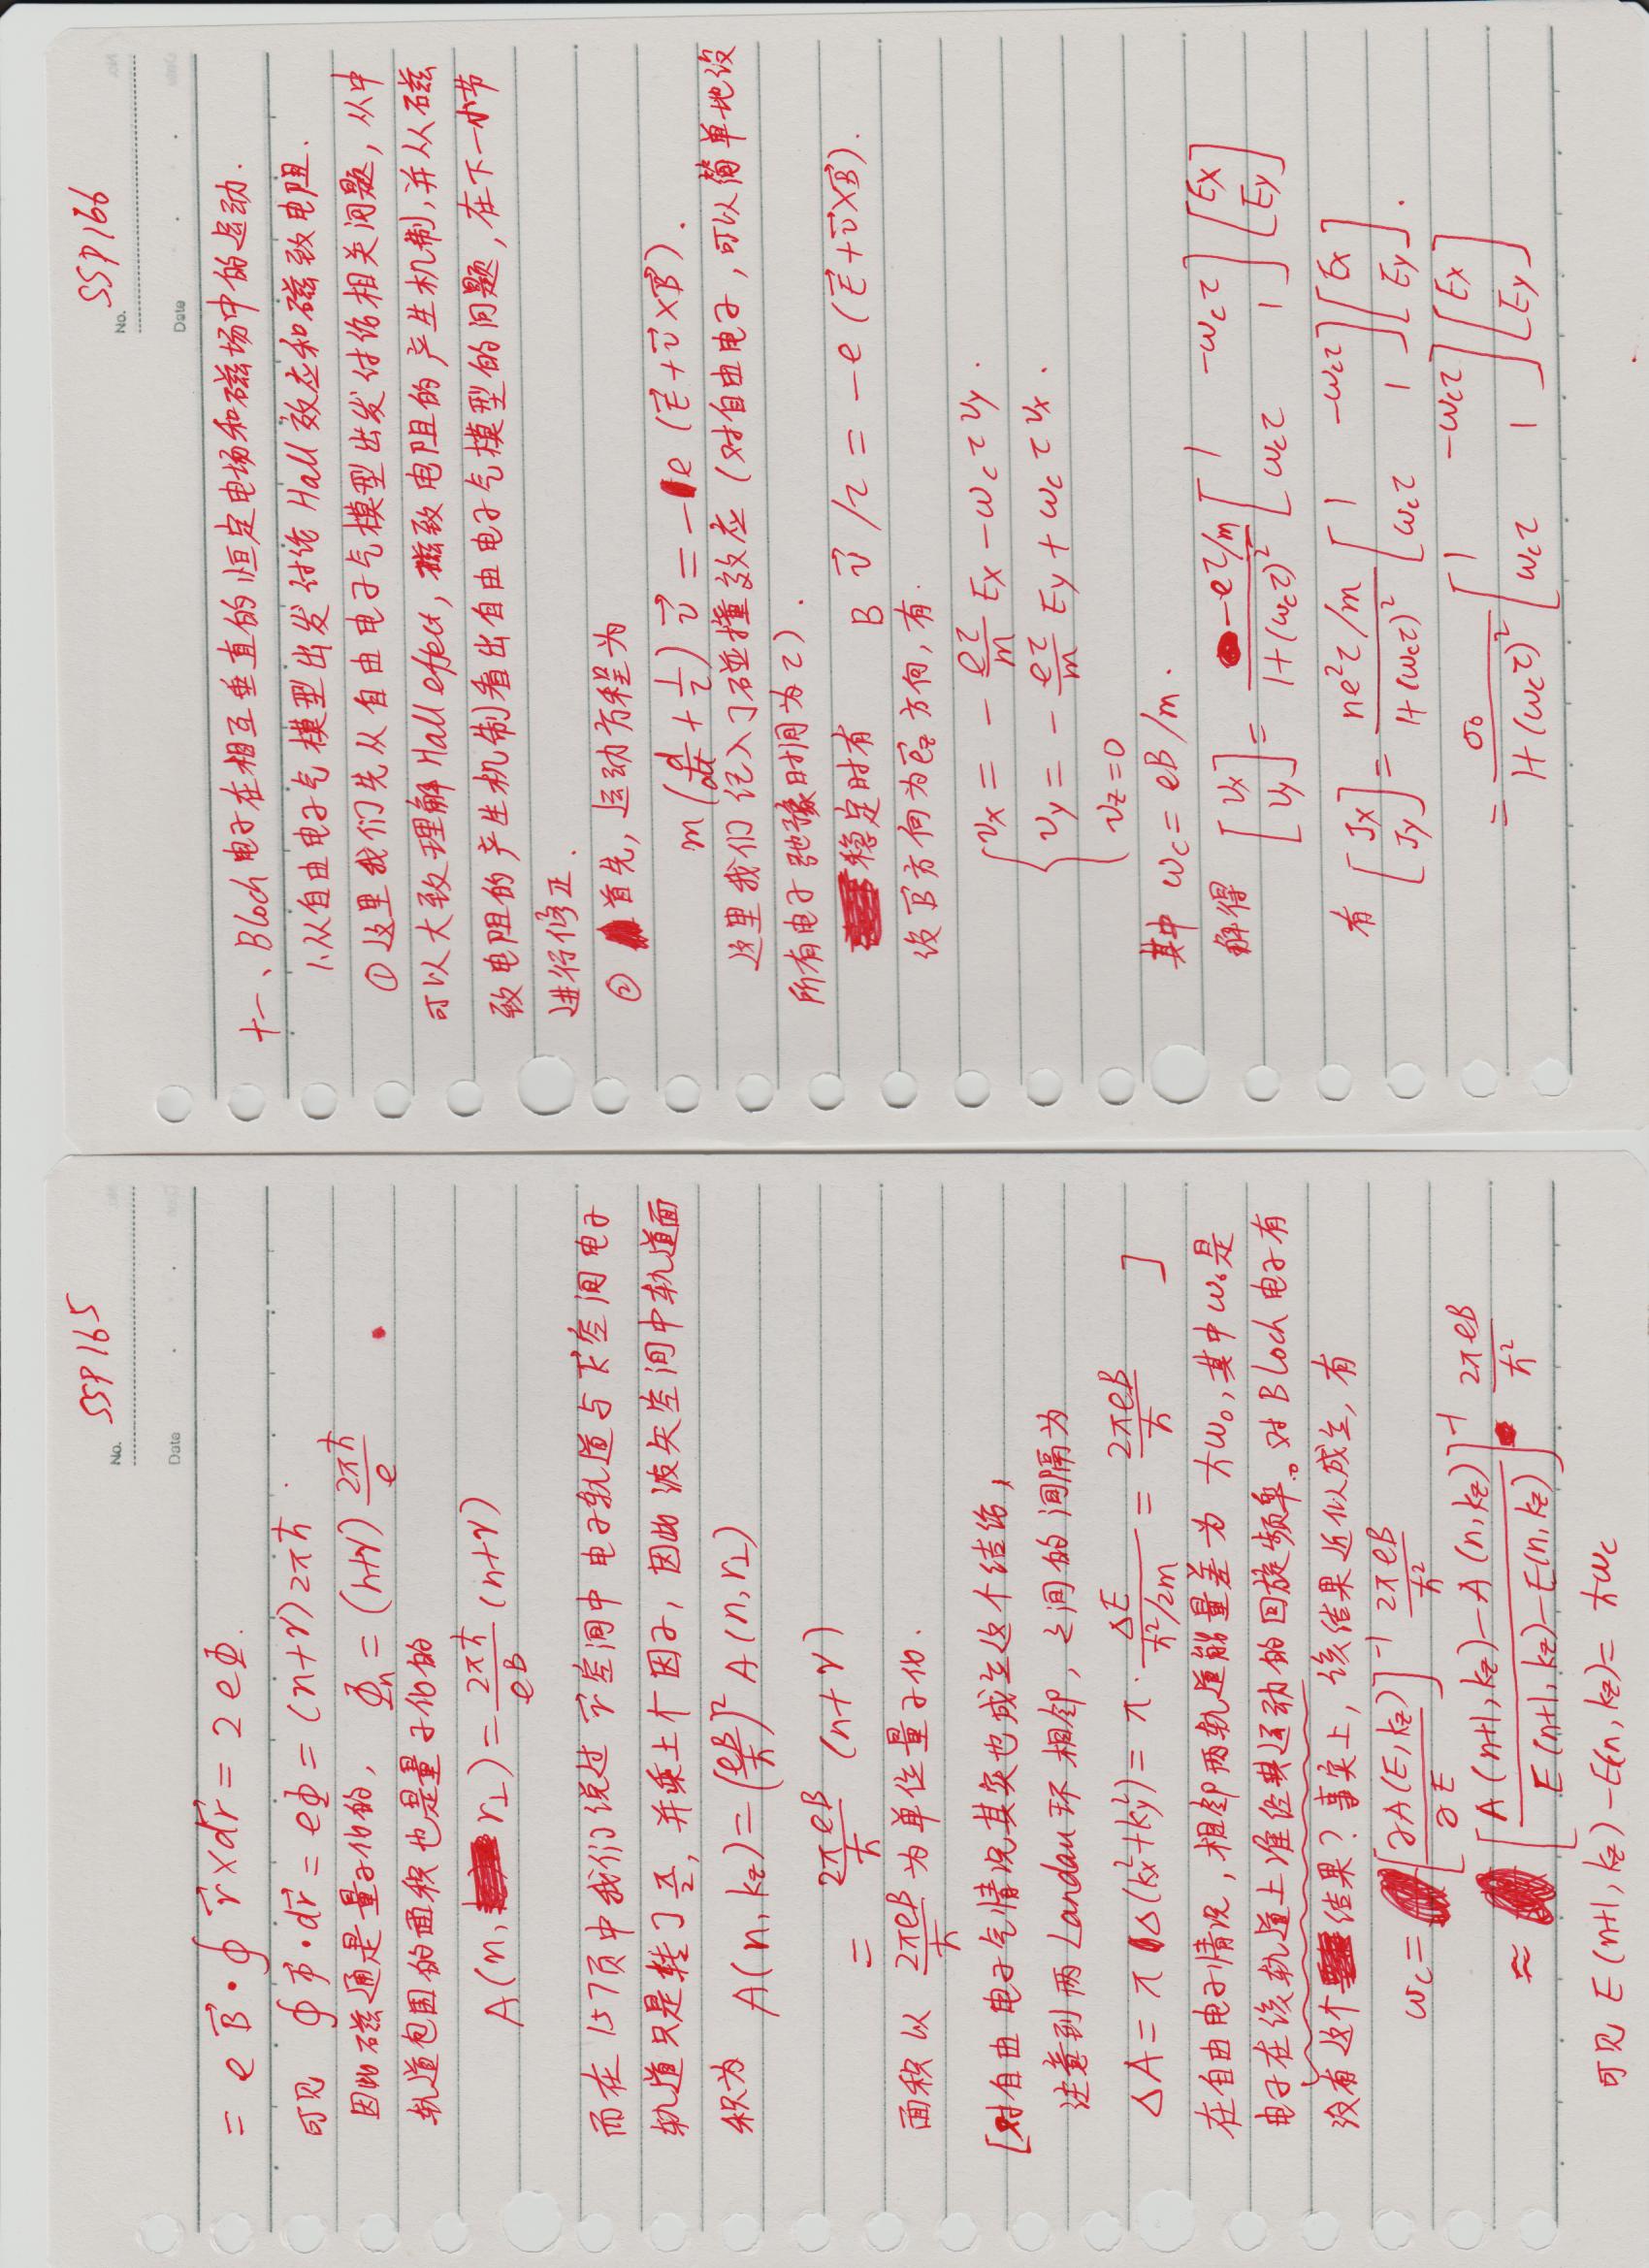 No. SSP165
Date
= e B⃗·∮ r⃗×dr⃗ = 2eΦ.
可见 ∮ p⃗·dr⃗ = eΦ = (n+γ)2πħ
因此磁通是量子化的, Φₙ = (n+γ) 2πħ/e
轨道包围的面积也是量子化的
A(n, r⊥) = 2πħ/eB (n+γ)
而在157页中我们说过 r⃗空间中电子轨道与k⃗空间电子
轨道只是转了π/2, 并乘上个因子, 因此波矢空间中轨道面
积为 A(n, kz) = (eB/ħ)² A(n, r⊥)
= 2πeB/ħ (n+γ)
面积以 2πeB/ħ 为单位量子化.
[对自由电子气情况其实也成立这个结论,
注意到两Landau环相邻, 之间的间隔为
ΔA = π Δ(kx²+ky²) = π· ΔE/(ħ²/2m) = 2πeB/ħ ]
在自由电子情况, 相邻两轨道能量差为 ħω₀, 其中ω₀是
电子在该轨道上准经典运动的回旋频率。对Bloch电子有
没有这个结果? 事实上, 该结果近似成立, 有
ωc = [∂A(E, kz)/∂E]⁻¹ 2πeB/ħ²
≈ [(A(n+1, kz) − A(n, kz))/(E(n+1, kz) − E(n, kz))]⁻¹ 2πeB/ħ²
可见 E(n+1, kz) − E(n, kz) = ħωc
No. SSP166
Date
十一、Bloch电子在相互垂直的恒定电场和磁场中的运动.
1.从自由电子气模型出发讨论Hall效应和磁致电阻.
①这里我们先从自由电子气模型出发讨论相关问题, 从中
可以大致理解Hall effect, 磁致电阻的产生机制, 并从磁
致电阻的产生机制看出自由电子气模型的问题, 在下一小节
进行修正.
② 首先, 运动方程为
m(d/dt + 1/τ) v⃗ = −e (E⃗ + v⃗×B⃗).
这里我们记入了碰撞效应 (对自由电子, 可以简单地设
所有电子弛豫时间为τ).
稳定时有 B v⃗/τ = −e (E⃗ + v⃗×B⃗).
设B⃗方向为e⃗z方向, 有.
{ vx = − eτ/m Ex − ωcτvy.
vy = − eτ/m Ey + ωcτvx.
vz = 0
其中 ωc = eB/m.
解得 [vx; vy] = (−eτ/m)/(1+(ωcτ)²) [1 −ωcτ; ωcτ 1] [Ex; Ey]
有 [Jx; Jy] = (ne²τ/m)/(1+(ωcτ)²) [1 −ωcτ; ωcτ 1] [Ex; Ey].
= σ₀/(1+(ωcτ)²) [1 −ωcτ; ωcτ 1] [Ex; Ey]